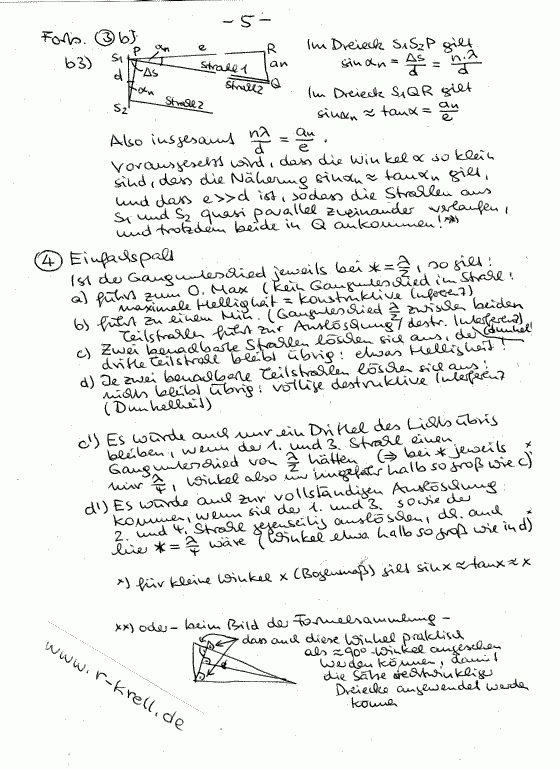 - 5 -
Forts. ③ b)
b3)
S₁ P αₙ e R
d Δs Strahl 1 aₙ
αₙ Strahl 2 Q
S₂ Strahl 2
Im Dreieck S₁S₂P gilt
sin αₙ = Δs/d = n·λ/d
Im Dreieck S₁QR gilt
sin αₙ ≈ tan α = aₙ/e
Also insgesamt nλ/d = aₙ/e .
Vorausgesetzt wird, dass die Winkel α so klein
sind, dass die Näherung sin αₙ ≈ tan αₙ gilt,
und dass e >> d ist, sodass die Strahlen aus
S₁ und S₂ quasi parallel zueinander verlaufen,
und trotzdem beide in Q ankommen! **)
④ Einfachspalt
Ist der Gangunterschied jeweils bei * = λ/2, so gilt:
a) führt zum 0. Max (Kein Gangunterschied im Strahl:
maximale Helligkeit = konstruktive Interferenz)
b) führt zu einem Min. (Gangunterschied λ/2 zwischen beiden
Teilstrahlen führt zur Auslöschung / destr. Interferenz)
(Dunkel)
c) Zwei benachbarte Strahlen löschen sich aus, der
dritte Teilstrahl bleibt übrig: etwas Helligkeit!
d) Je zwei benachbarte Teilstrahlen löschen sich aus;
nichts bleibt übrig: völlige destruktive Interferenz
(Dunkelheit)
c') Es würde auch nur ein Drittel des Lichts übrig
bleiben, wenn der 1. und 3. Strahl einen
Gangunterschied von λ/2 hätten (⇒ bei * jeweils
nur λ/4, Winkel also nur ungefähr halb so groß wie c) *
d') Es würde auch zur vollständigen Auslöschung
kommen, wenn sich der 1. und 3. sowie der
2. und 4. Strahl gegenseitig auslöschen, d.h. auch
hier * = λ/4 wäre (Winkel etwa halb so groß wie in d) *
*) für kleine Winkel x (Bogenmaß) gilt sin x ≈ tan x ≈ x
**) oder - beim Bild der Formelsammlung -
dass auch diese Winkel praktisch
als ≈90°-Winkel angesehen
werden können, damit
die Sätze rechtwinkliger
Dreiecke angewendet werden
können
www.r-krell.de